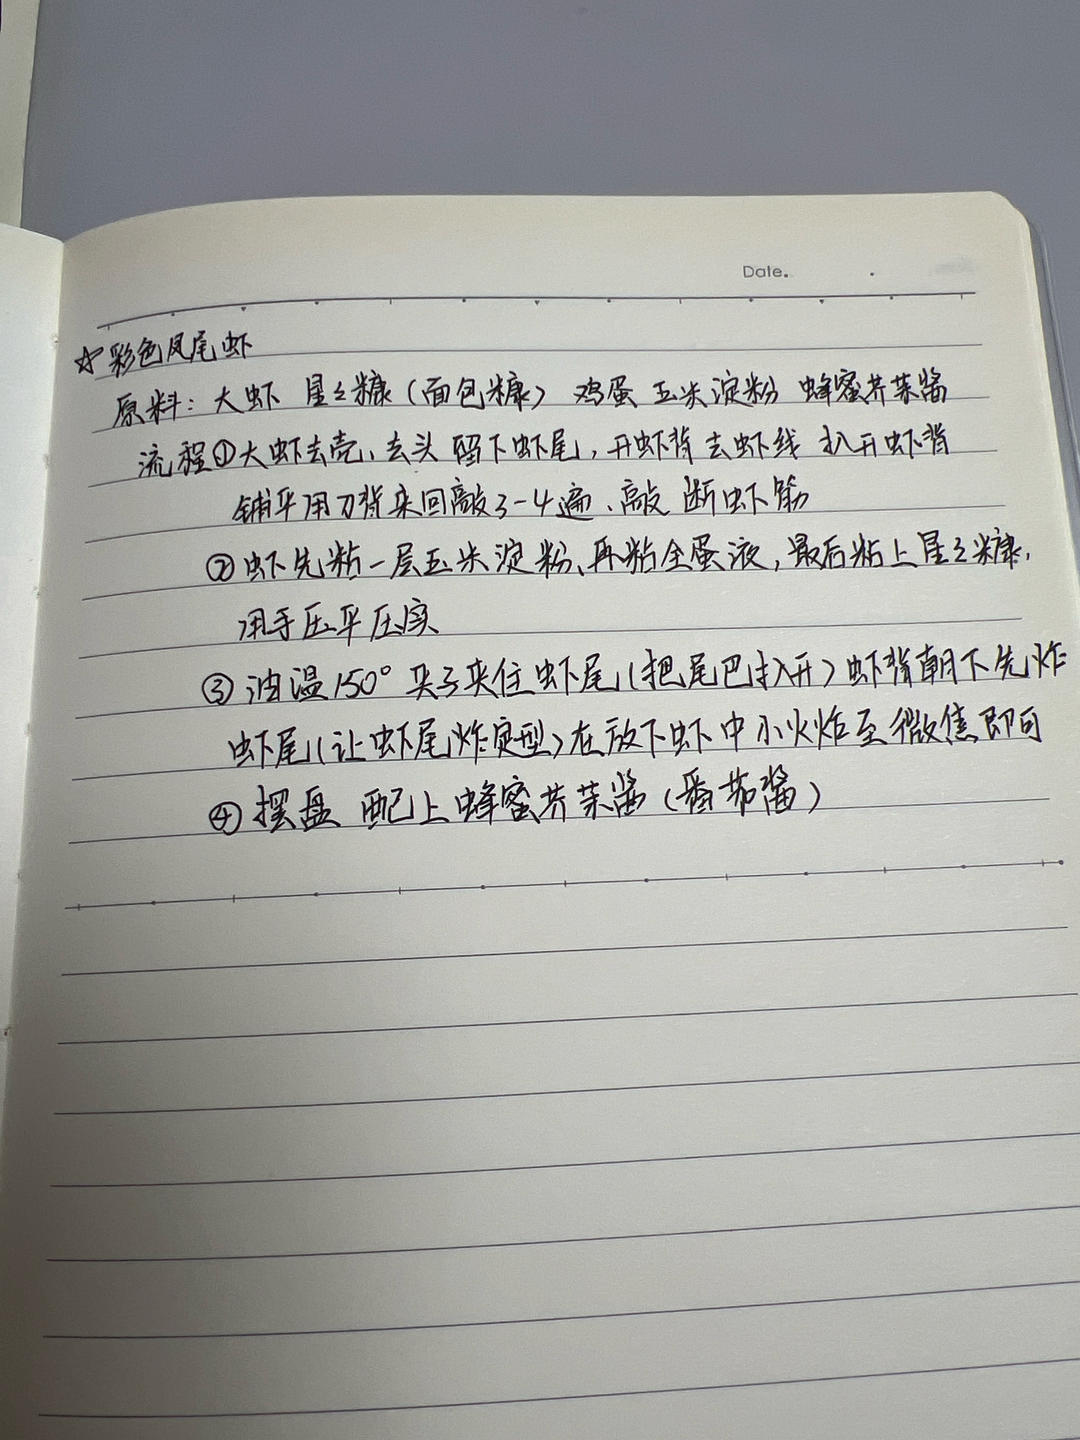 Date.
☆彩色凤尾虾
原料：大虾 星星糠（面包糠） 鸡蛋 玉米淀粉 蜂蜜芥茉酱
流程①大虾去壳、去头 留下虾尾，开虾背去虾线 扒开虾背
铺平用刀背来回敲3-4遍、敲断虾筋
②虾先粘一层玉米淀粉、再粘全蛋液，最后粘上星星糠，
用手压平压实
③油温150° 夹子夹住虾尾（把尾巴扒开）虾背朝下先炸
虾尾（让虾尾炸定型）在放下虾中小火炸至微焦即可
④摆盘 配上蜂蜜芥茉酱（番茄酱）